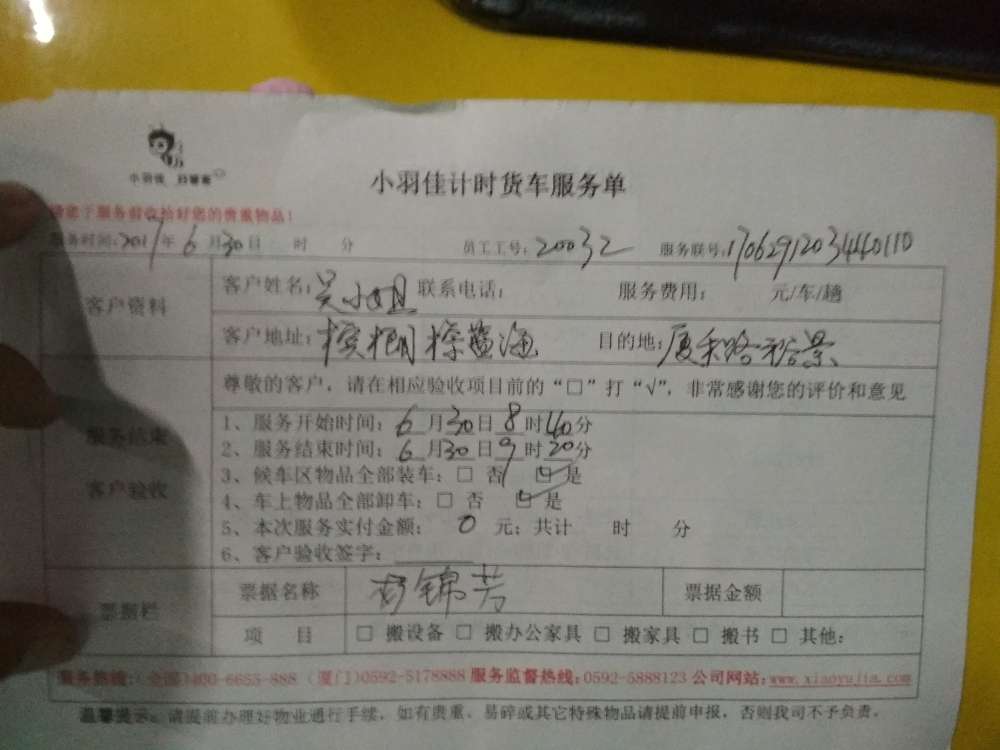 小羽佳
小羽佳计时货车服务单
请您于服务前收拾好您的贵重物品！
服务时间：2017年6月30日 时 分 员工工号：20032 服务联号：17062912034440110
客户资料 客户姓名：吴小姐 联系电话： 服务费用： 元/车/趟
客户地址： 目的地：厦禾路裕景
尊敬的客户，请在相应验收项目前的“□”打“√”，非常感谢您的评价和意见
服务结束
客户验收
1、服务开始时间：6月30日8时40分
2、服务结束时间：6月30日9时20分
3、候车区物品全部装车：□ 否 ☑是
4、车上物品全部卸车：□ 否 ☑是
5、本次服务实付金额： 0 元；共计 时 分
6、客户验收签字：
票据栏 票据名称 锦芳 票据金额
项 目 □ 搬设备 □ 搬办公家具 □ 搬家具 □ 搬书 □ 其他：
服务热线：（全国）400-6655-888（厦门）0592-5178888 服务监督热线：0592-5888123 公司网站：www.xiaoyujia.com
温馨提示：请提前办理好物业通行手续，如有贵重、易碎或其它特殊物品请提前申报，否则我司不予负责。